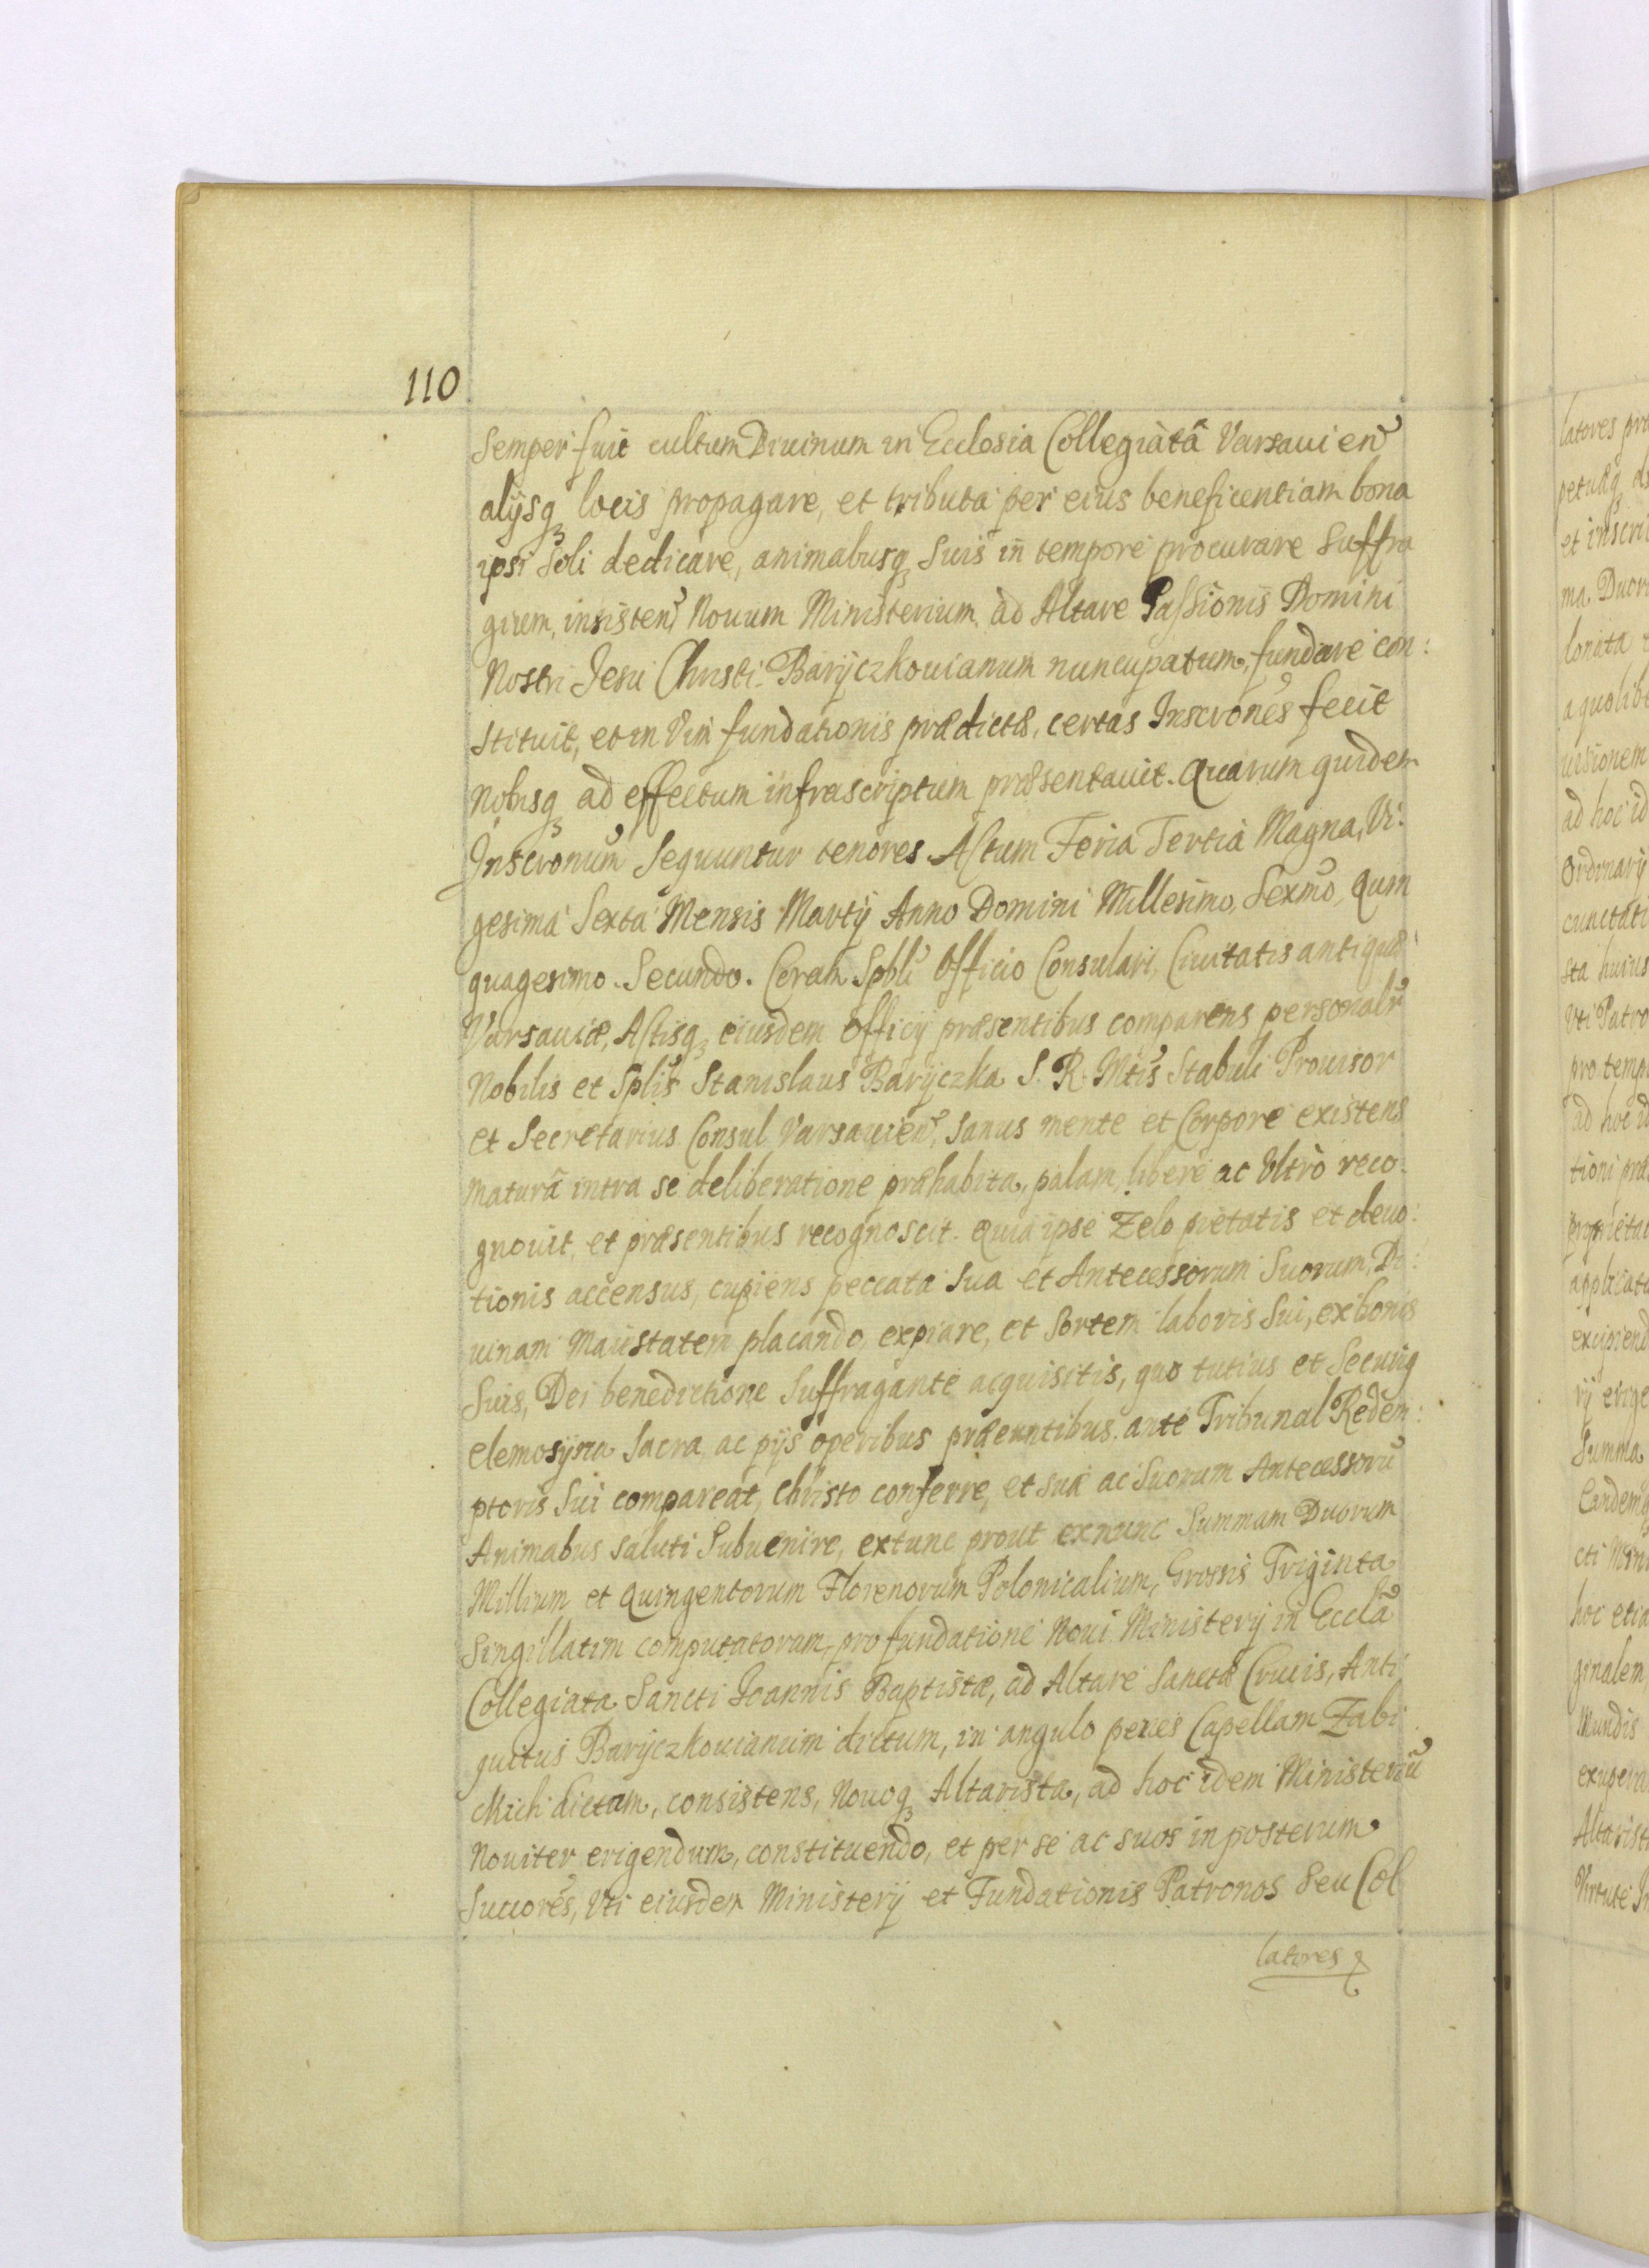 110
Semper fuit cultum Diuinum in Ecclesia Collegiatâ Varsauien̄
alijsq₃ locis propagare, et tributa per eius beneficentiam bona
ipsi Soli dedicare, animabusq₃ Suis in tempore procurare Suffra
gium, insisten̄ Nouum Ministerium ad Altare Passionis Domini
Nostri Jesu Christi Baryczkouianum nuncupatum, fundare con:
stituit, et in Vim fundationis prædictæ, certas Inscrōnes fecit
Nobisq₃ ad effectum infrascriptum præsentauit. Quarum quidem
Inscronum̄ Sequuntur tenores. Actum Feria Tertia Magna, Vi:
gesima Sexta Mensis Martij Anno Domini Millesimo, Sexmō, Quin
quagesimo Secundo. Coram Spbli Officio Consulari, Ciuitatis antiquæ
Varsauiæ, Actisq₃ eiusdem Officij præsentibus comparens personalr̄
Nobilis et Splis Stanislaus Baryczka S. R. Mtis Stabuli Prouisor
et Secretarius Consul Varsauien̄, Sanus mente et Corpore existens
maturâ intra se deliberatione præhabita, palam, libere ac Vltrò reco:
gnouit, et præsentibus recognoscit. Quia ipse Zelo pietatis et deuo:
tionis accensus, cupiens peccata Sua et Antecessorum Suorum, Di:
uinam Maiestatem placando, expiare, et Sortem laboris Sui, ex bonis
Suis, Dei benedictione Suffragante acquisitis, quo tutius et Securiq
elemosÿna Sacra ac pijs operibus præeuntibus ante Tribunal Redem:
ptoris Sui compareat, Christo conferre, et sua ac Suorum Antecessorū
Animabus Saluti Subuenire, extunc prout exnunc Summam Duorum
Millium et Quingentorum Florenorum Polonicalium, Grossis Triginta
Singillatim computatorum, pro fundatione Noui Ministerij in Ecclā
Collegiata Sancti Joannis Baptistæ, ad Altare Sanctæ Crucis, Anti
quitus Baryczkouianum dictum, in angulo penes Capellam Zabi
ckich dictam, consistens, Nouoq₃ Altarista, ad hoc idem Ministeriū
Nouiter erigendum, constituendo, et per se ac suos in posterum
Succores, Vti eiusdem Ministerij et Fundationis Patronos Seu Col
latores